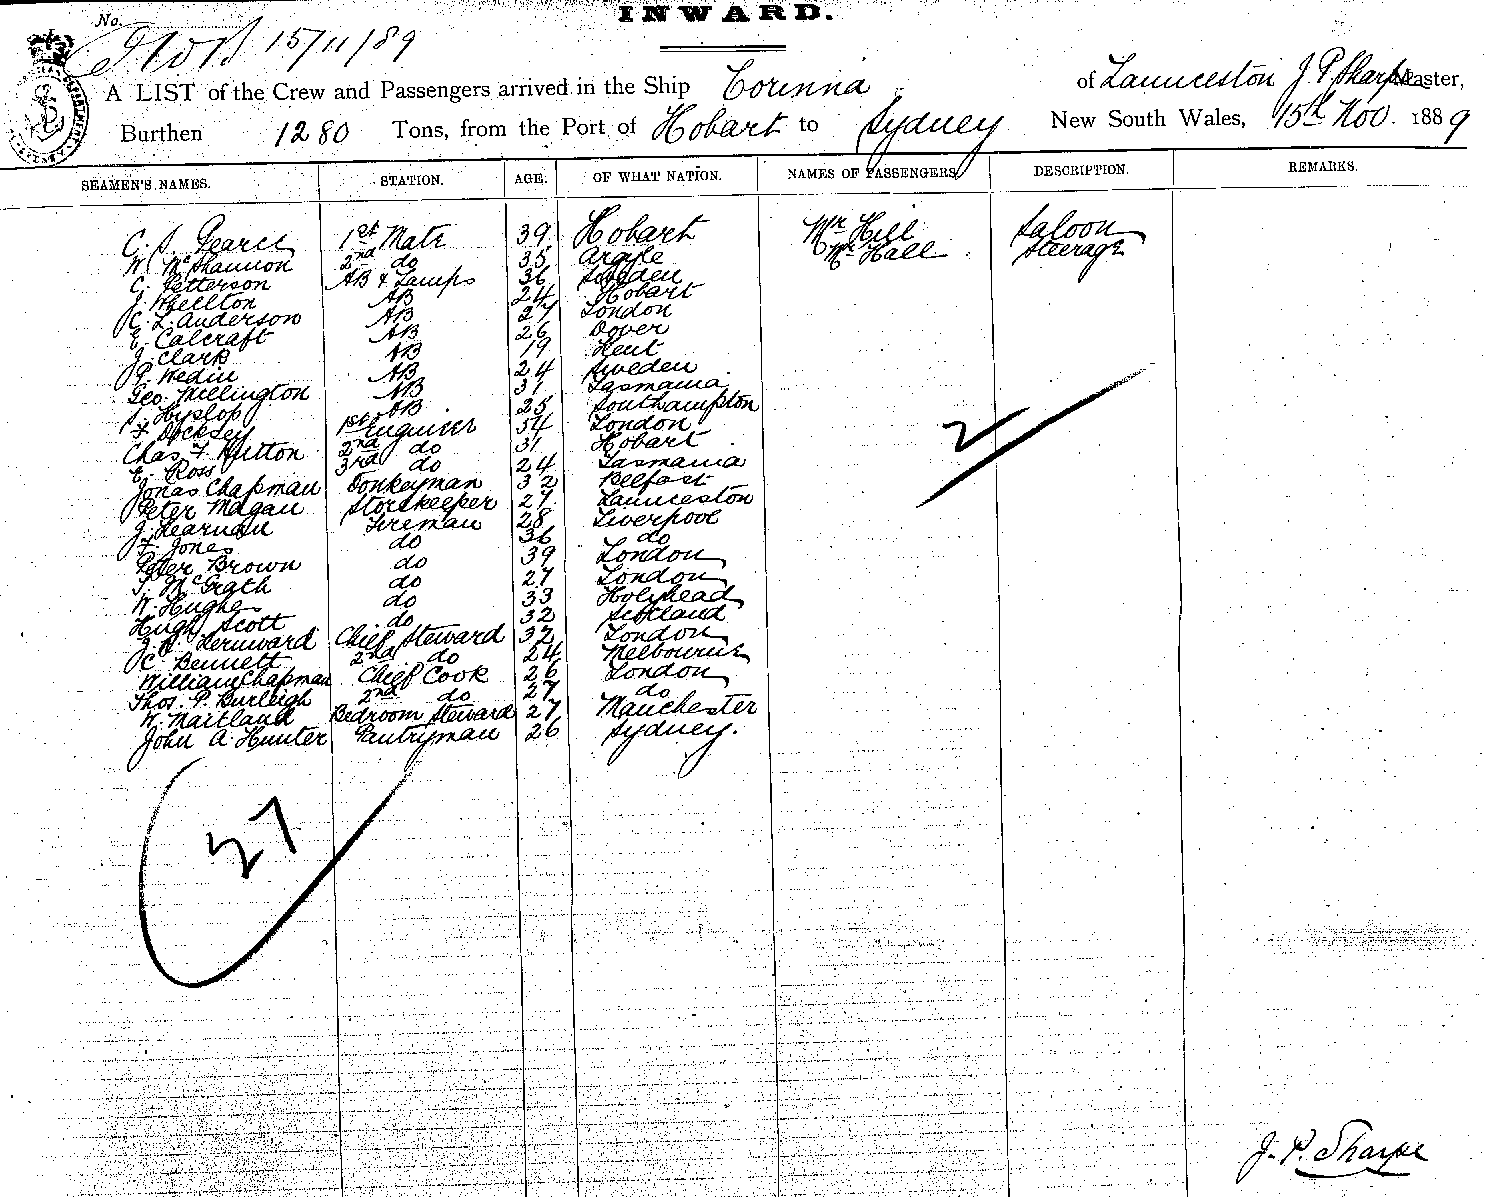 INWARD.
No.
15/11/89
A LIST of the Crew and Passengers arrived in the Ship Corinna of Launceston J P Sharpe Master,
Burthen 1280 Tons, from the Port of Hobart to Sydney New South Wales, 15th Nov. 1889
SEAMEN'S NAMES. STATION. AGE. OF WHAT NATION. NAMES OF PASSENGERS. DESCRIPTION. REMARKS.
C. S. Pearce 1st Mate 39 Hobart Mr Hill Saloon
W McShannon 2nd do 35 Argyle Mr Hall Steerage
C. Petterson AB & Lamps 36 Sweden
J. Whellton AB 24 Hobart
C. L. Anderson AB 27 London
E. Calcraft AB 26 Dover
J. Clark AB 19 Kent
P. Wedin AB 24 Sweden
Geo. Millington AB 31 Tasmania
S. Hyslop AB 25 Southampton
F. Docksey 1st Engineer 54 London
Chas. F. Hutton 2nd do 31 Hobart
E. Ross 3rd do 24 Tasmania
Jonas Chapman Donkeyman 32 Belfast
Peter Magau Storekeeper 27 Launceston
J. Fireman 28 Liverpool
F. Jones do 36 do
Peter Brown do 39 London
T. McGrath do 27 London
W. Hughes do 33 Holyhead
Hugh Scott do 32 Scotland
Chief Steward 32 London
C. Bennett 2nd do 24 Melbourne
William Chapman Chief Cook 26 London
Thos. P. Burleigh 2nd do 27 do
W. Maitland Bedroom Steward 27 Manchester
John A Hunter Pantryman 26 Sydney.
2
27
J. P. Sharpe